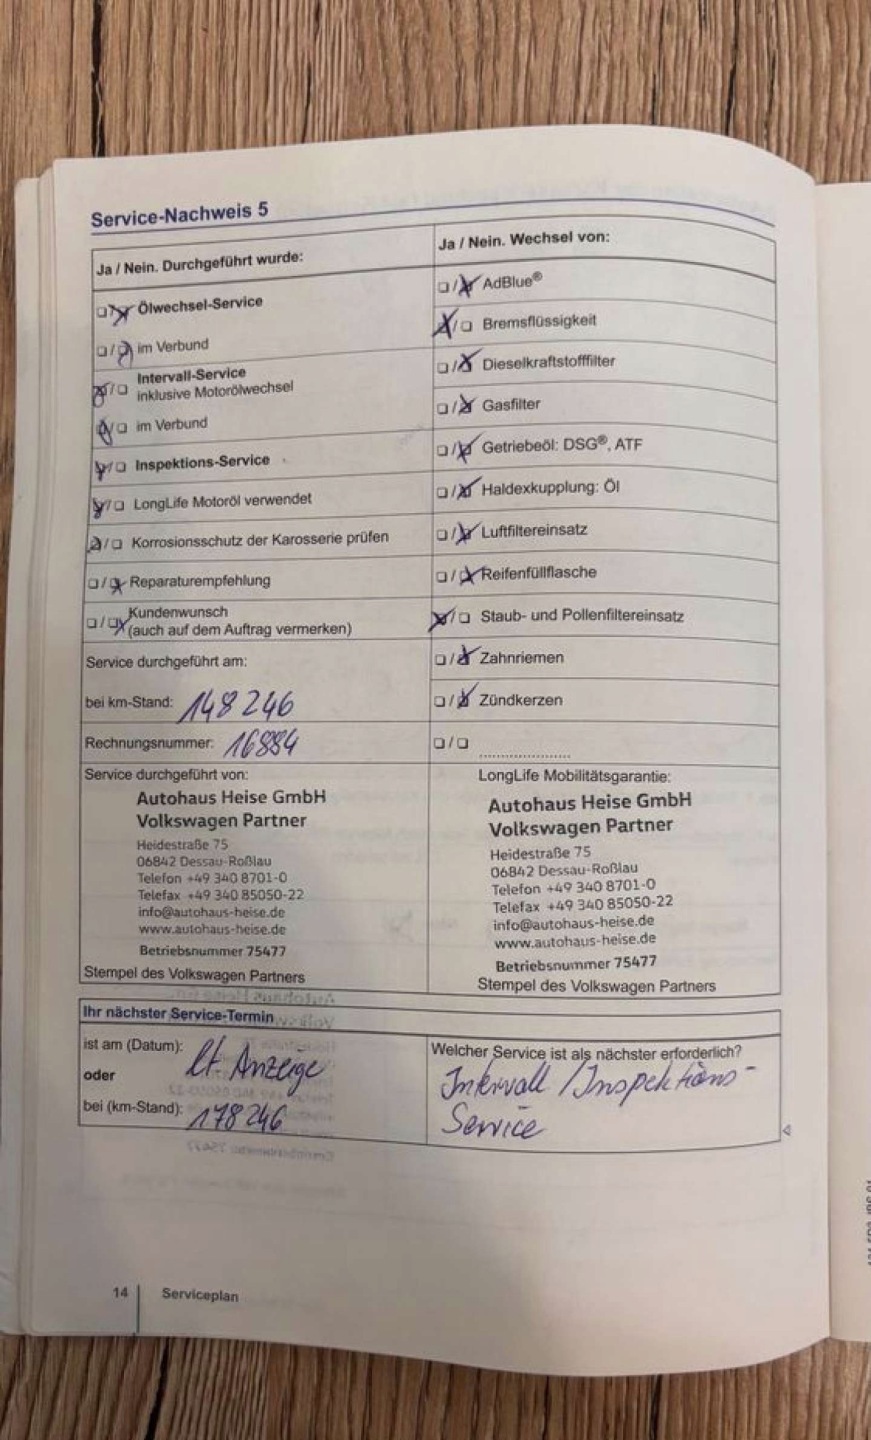 Service-Nachweis 5
Ja / Nein. Durchgeführt wurde:
☐/☒ Ölwechsel-Service
☐/☒ im Verbund
☒/☐ Intervall-Service
inklusive Motorölwechsel
☒/☐ im Verbund
☒/☐ Inspektions-Service
☒/☐ LongLife Motoröl verwendet
☒/☐ Korrosionsschutz der Karosserie prüfen
☐/☒ Reparaturempfehlung
☐/☒ Kundenwunsch
(auch auf dem Auftrag vermerken)
Service durchgeführt am:
bei km-Stand: 148246
Rechnungsnummer: 16884
Ja / Nein. Wechsel von:
☐/☒ AdBlue®
☒/☐ Bremsflüssigkeit
☐/☒ Dieselkraftstofffilter
☐/☒ Gasfilter
☐/☒ Getriebeöl: DSG®, ATF
☐/☒ Haldexkupplung: Öl
☐/☒ Luftfiltereinsatz
☐/☒ Reifenfüllflasche
☒/☐ Staub- und Pollenfiltereinsatz
☐/☒ Zahnriemen
☐/☒ Zündkerzen
☐/☐ ....................
Service durchgeführt von:
Autohaus Heise GmbH
Volkswagen Partner
Heidestraße 75
06842 Dessau-Roßlau
Telefon +49 340 8701-0
Telefax +49 340 85050-22
info@autohaus-heise.de
www.autohaus-heise.de
Betriebsnummer 75477
Stempel des Volkswagen Partners
LongLife Mobilitätsgarantie:
Autohaus Heise GmbH
Volkswagen Partner
Heidestraße 75
06842 Dessau-Roßlau
Telefon +49 340 8701-0
Telefax +49 340 85050-22
info@autohaus-heise.de
www.autohaus-heise.de
Betriebsnummer 75477
Stempel des Volkswagen Partners
Ihr nächster Service-Termin
ist am (Datum): lt. Anzeige
oder
bei (km-Stand): 178246
Welcher Service ist als nächster erforderlich?
Intervall / Inspektions-
Service
14 Serviceplan